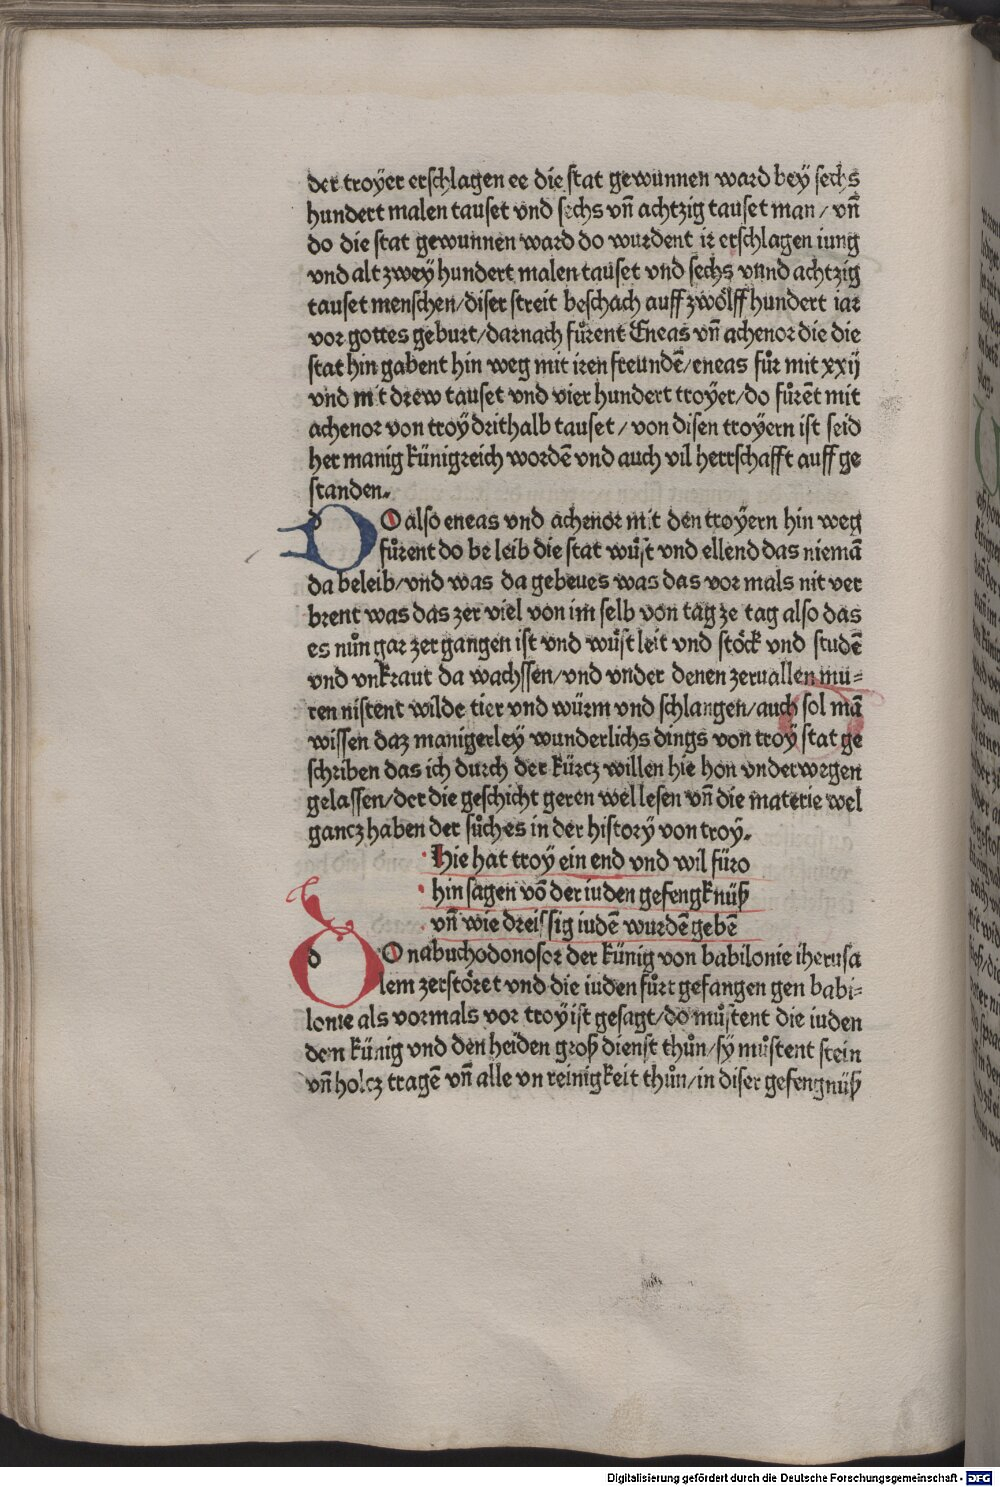 der troÿer erschlagen ee die stat gewunnen ward beÿ sechs
hundert malen tauset vnd sechs vn̄ achtzig tauset man / vn̄
do die stat gewunnen ward do wurdent ir erschlagen iung
vnd alt zweÿ hundert malen tauset vnd sechs vnnd achtzig
tauset menschen/diser streit beschach auff zwoͤlff hundert iar
vor gottes geburt/darnach fuͦrent Eneas vn̄ achenor die die
stat hin gabent hin weg mit iren freundē/eneas fuͦr mit xxij
vnd mit drew tauset vnd vier hundert troyer/do fuͦrēt mit
achenor von troÿ drithalb tauset / von disen troyern ist seid
her manig künigreich wordē vnd auch vil herrschafft auff ge
standen.
DO also eneas vnd achenor mit den troÿern hin weg
fuͦrent do be leib die stat wuͤst vnd ellend das niemā
da beleib/vnd was da gebeues was das vor mals nit ver
brent was das zer viel von im selb von tag ze tag also das
es nuͦn gar zer gangen ist vnd wuͤst leit vnd stoͤck vnd studē
vnd vnkraut da wachssen/vnd vnder denen zeruallen mu⸗
ren nistent wilde tier vnd würm vnd schlangen/auch sol mā
wissen daz manigerleÿ wunderlichs dings von troÿ stat ge
schriben das ich durch der kürcz willen hie hon vnderwegen
gelassen/der die geschicht geren wel lesen vn̄ die materie wel
gancz haben der suͦch es in der historÿ von troÿ.
hie hat troÿ ein end vnd wil füro
hin sagen vō der iuden gefengknüß
vn̄ wie dreissig iudē wurdē gebē
dO nabuchodonosor der künig von babilonie iherusa
lem zerstoͤret vnd die iuden fuͦrt gefangen gen babi⸗
lonie als vormals vor troÿ ist gesagt/do muͦstent die iuden
dem künig vnd den heiden groß dienst thuͦn/sÿ muͦstent stein
vn̄ holcz tragē vn̄ alle vn reinigkeit thuͦn/in diser gefengnüß
Digitalisierung gefördert durch die Deutsche Forschungsgemeinschaft - DFG